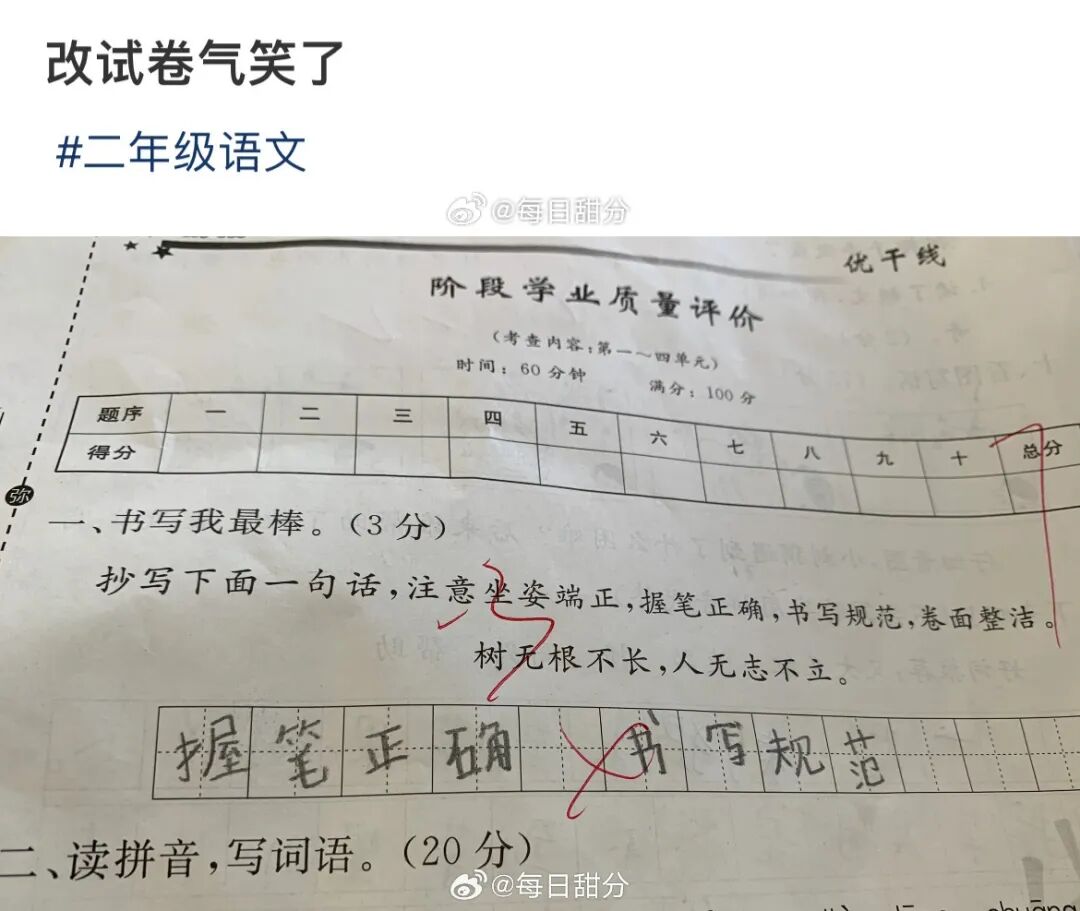 改试卷气笑了
#二年级语文
@每日甜分
优干线
阶段学业质量评价
（考查内容：第一～四单元）
时间：60分钟 满分：100分
题序 一 二 三 四 五 六 七 八 九 十 总分
得分
弥
一、书写我最棒。（3分）
抄写下面一句话，注意坐姿端正，握笔正确，书写规范，卷面整洁。
树无根不长，人无志不立。
握笔正确 书写规范
二、读拼音，写词语。（20分）
@每日甜分